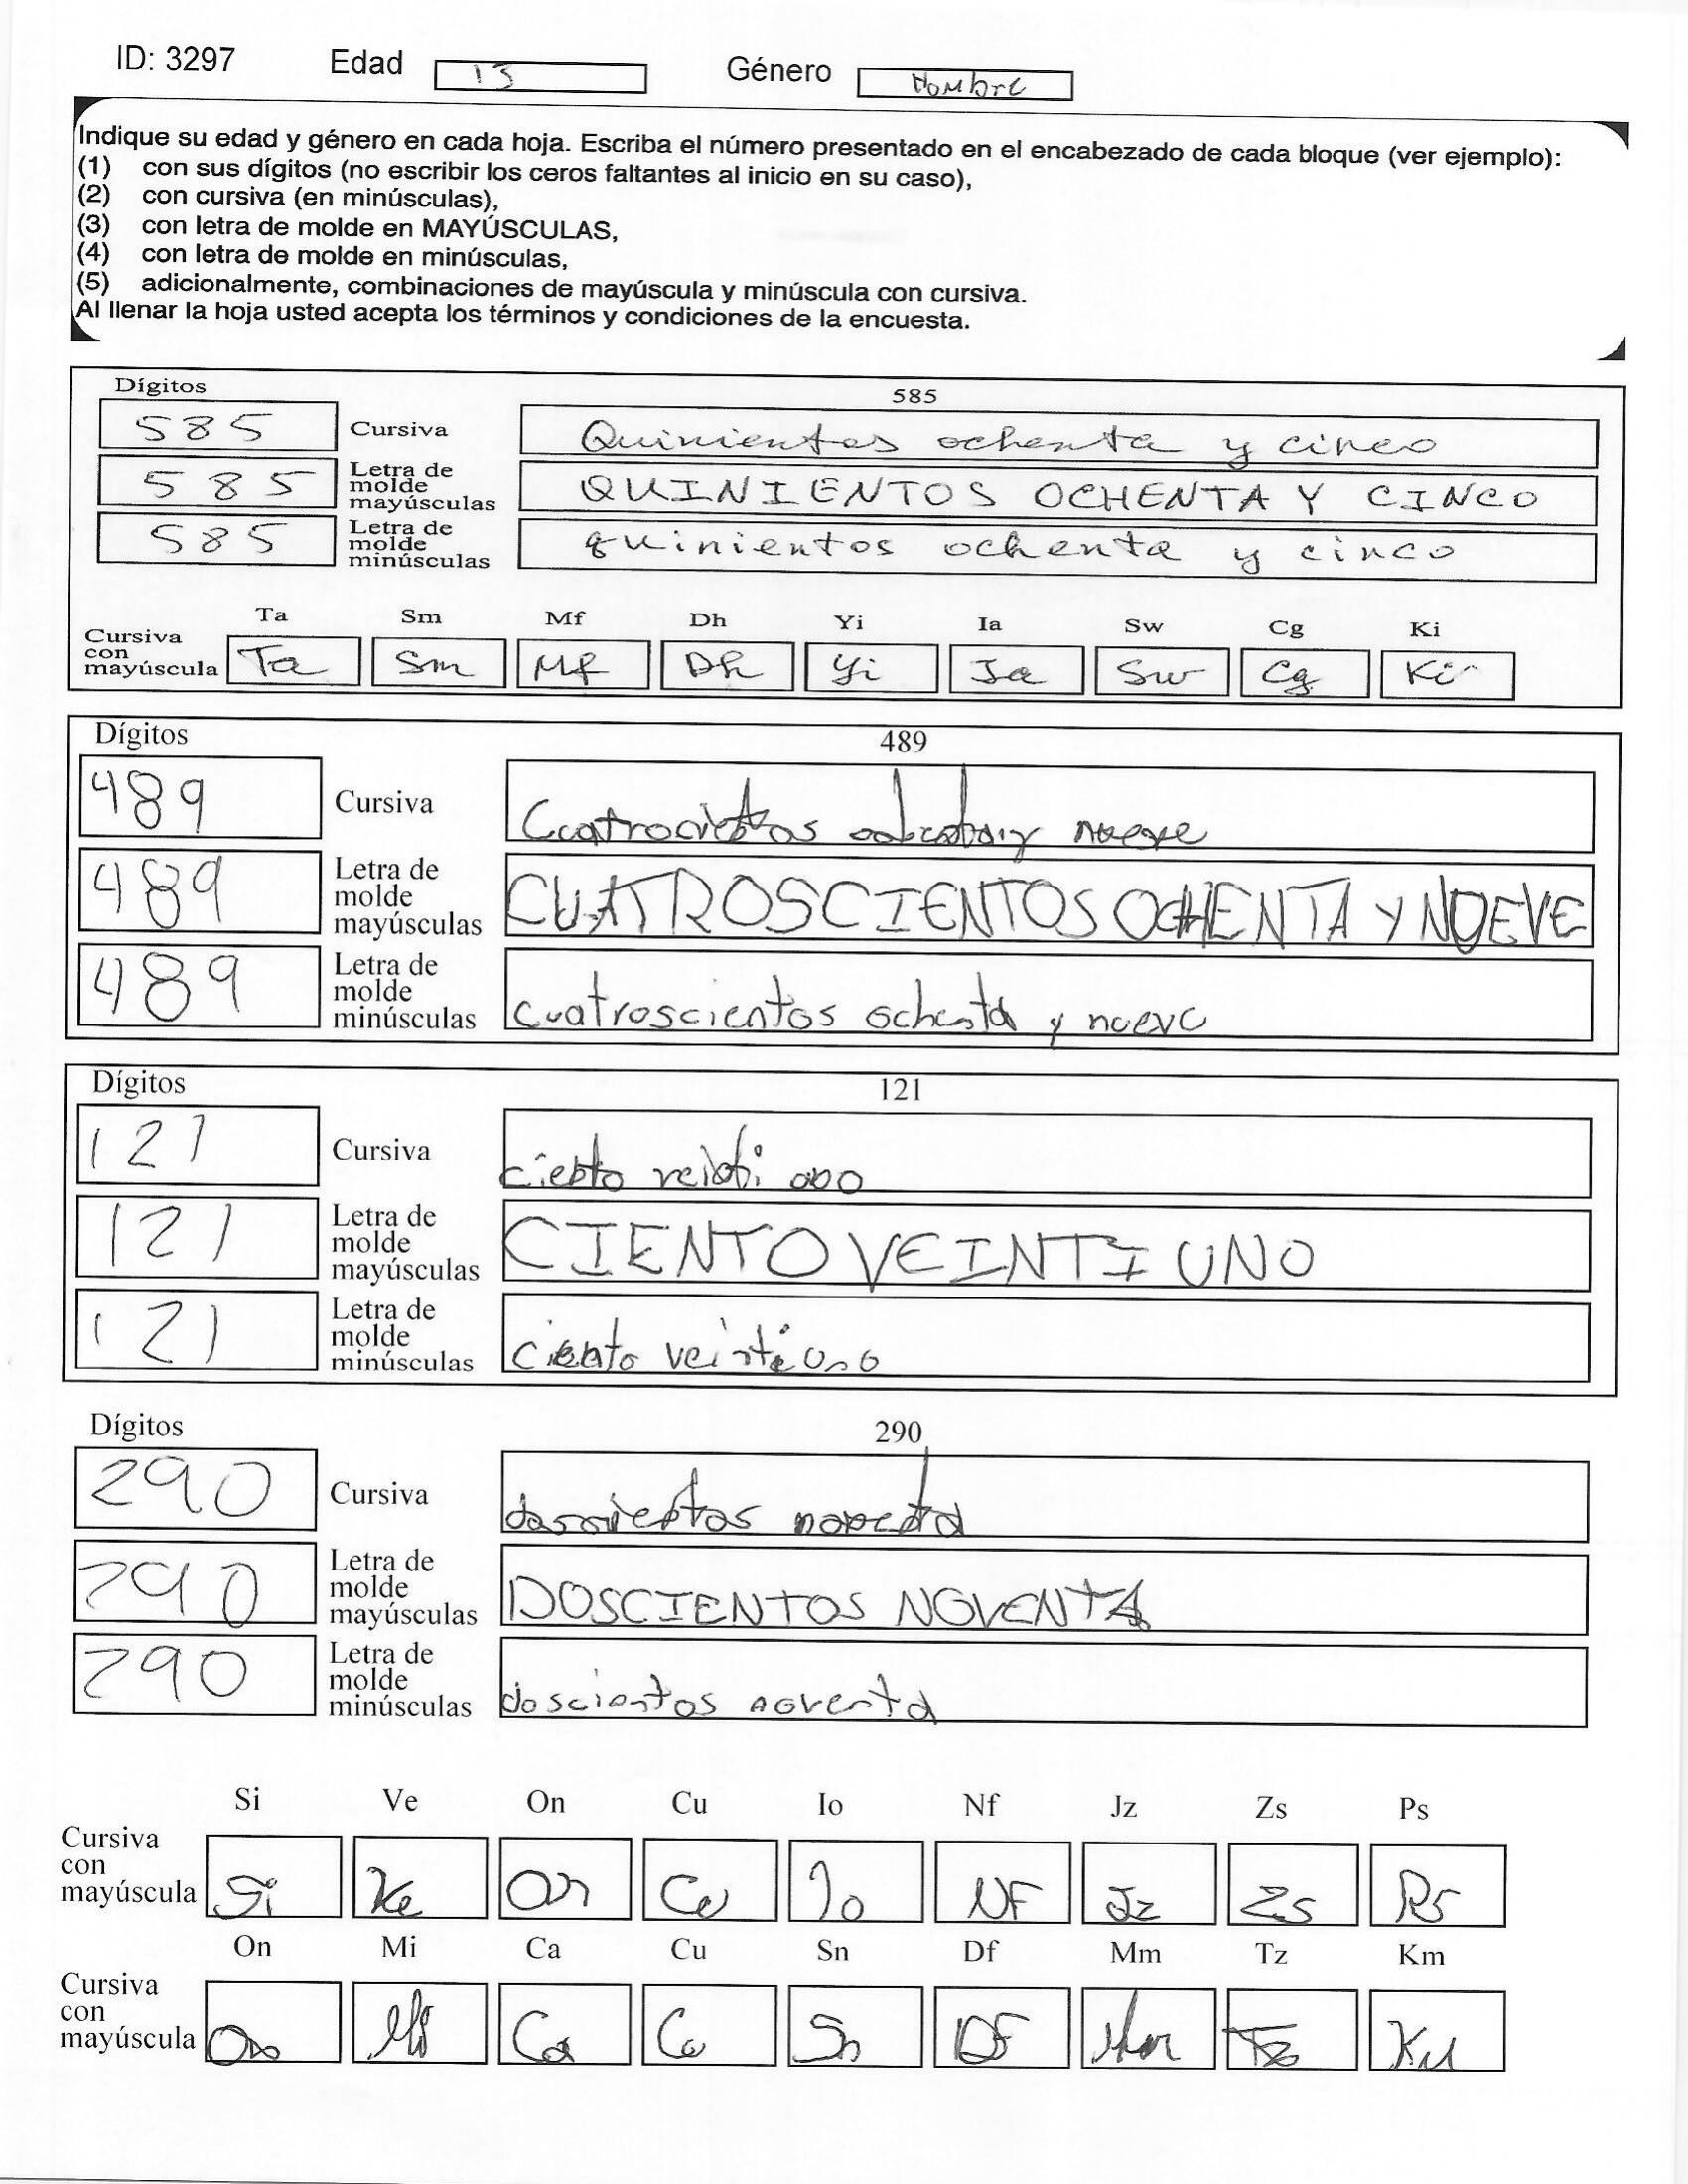 ID: 3297 Edad 13 Género Hombre
Indique su edad y género en cada hoja. Escriba el número presentado en el encabezado de cada bloque (ver ejemplo):
(1) con sus dígitos (no escribir los ceros faltantes al inicio en su caso),
(2) con cursiva (en minúsculas),
(3) con letra de molde en MAYÚSCULAS,
(4) con letra de molde en minúsculas,
(5) adicionalmente, combinaciones de mayúscula y minúscula con cursiva.
Al llenar la hoja usted acepta los términos y condiciones de la encuesta.
Dígitos 585
585 Cursiva Quinientos ochenta y cinco
585 Letra de molde mayúsculas QUINIENTOS OCHENTA Y CINCO
585 Letra de molde minúsculas quinientos ochenta y cinco
Ta Sm Mf Dh Yi Ia Sw Cg Ki
Cursiva con mayúscula Ta Sm Mf Dh Yi Ia Sw Cg Ki
Dígitos 489
489 Cursiva Cuatrocientos ochenta y nueve
489 Letra de molde mayúsculas CUATROSCIENTOS OCHENTA Y NUEVE
489 Letra de molde minúsculas cuatroscientos ochenta y nueve
Dígitos 121
121 Cursiva ciento veinti uno
121 Letra de molde mayúsculas CIENTO VEINTI UNO
121 Letra de molde minúsculas ciento veinti uno
Dígitos 290
290 Cursiva doscientos noventa
290 Letra de molde mayúsculas DOSCIENTOS NOVENTA
290 Letra de molde minúsculas doscientos noventa
Si Ve On Cu Io Nf Jz Zs Ps
Cursiva con mayúscula Si Ve On Cu Io NF Jz Zs Ps
On Mi Ca Cu Sn Df Mm Tz Km
Cursiva con mayúscula On Mi Ca Cu Sn DF Mm Tz Km